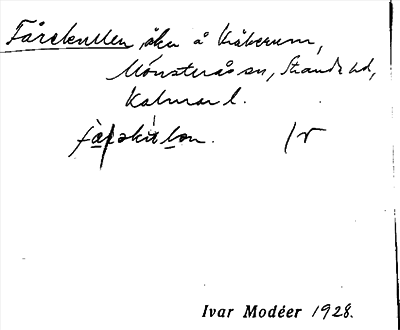 Fårekullen, åker å Kråkerum,
Mönsterås sn, Stranda hd,
Kalmar l.
Ivar Modéer 1928.